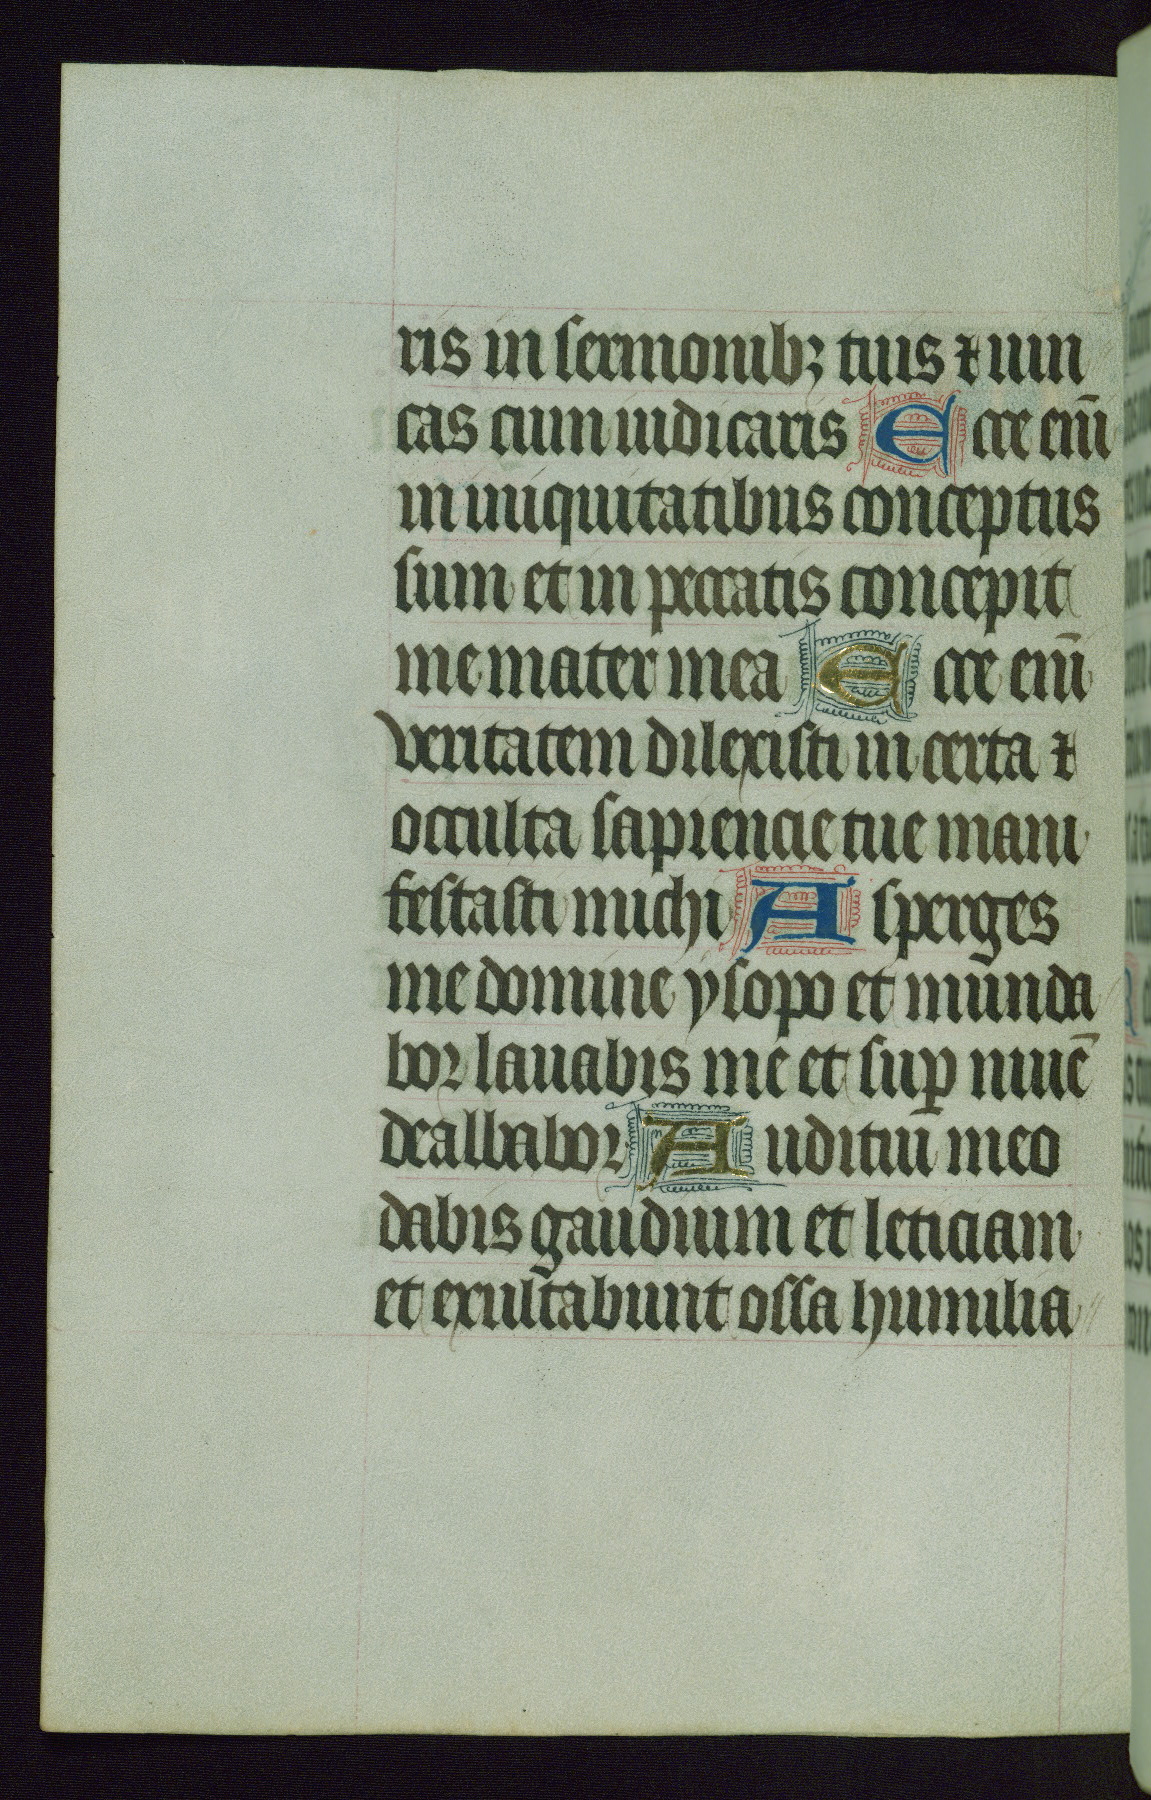 ris in sermonibꝫ tuis ⁊ uin
cas cum iudicaris Ecce enī
in iniquitatibus conceptus
sum et in peccatis concepit
me mater mea Ecce enī
veritatem dilexisti incerta ⁊
occulta sapiencie tue mani
festasti michi Asperges
me domine ysopo et munda
bor lauabis me et suꝑ niuē
dealbabor Auditui meo
dabis gaudium et leticiam
et exultabunt ossa humilia